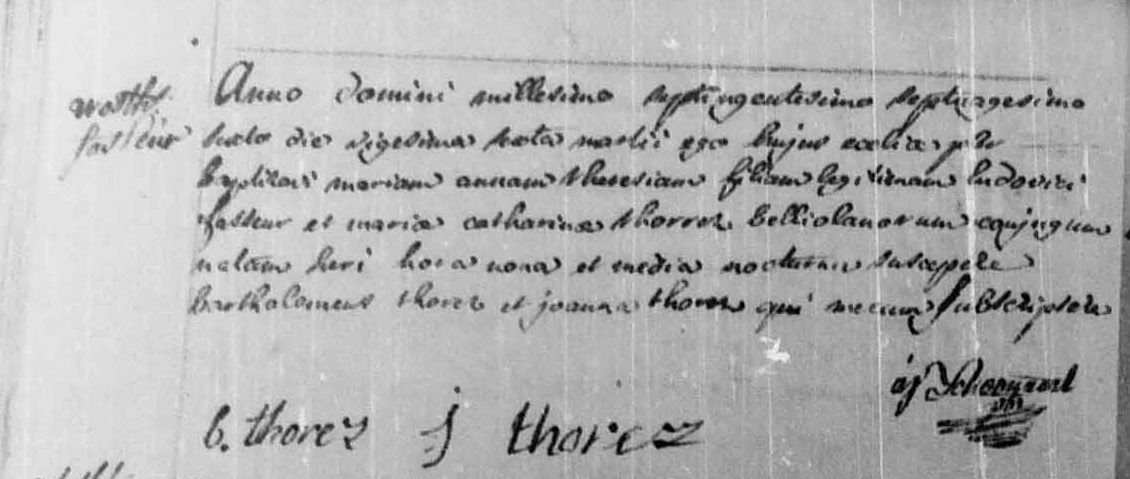 Anno domini millesimo septingentesimo septuagesimo
die vigesima martii ego hujus
mariam annam theresiam filiam legitimam ludovici
fasseur et mariæ catharinæ thorrez belliolanorum conjugum
natam heri hora nona et media suscepere
bartholomeus thorez et joanna thorez qui mecum subscripsere
b. thorez j thorez